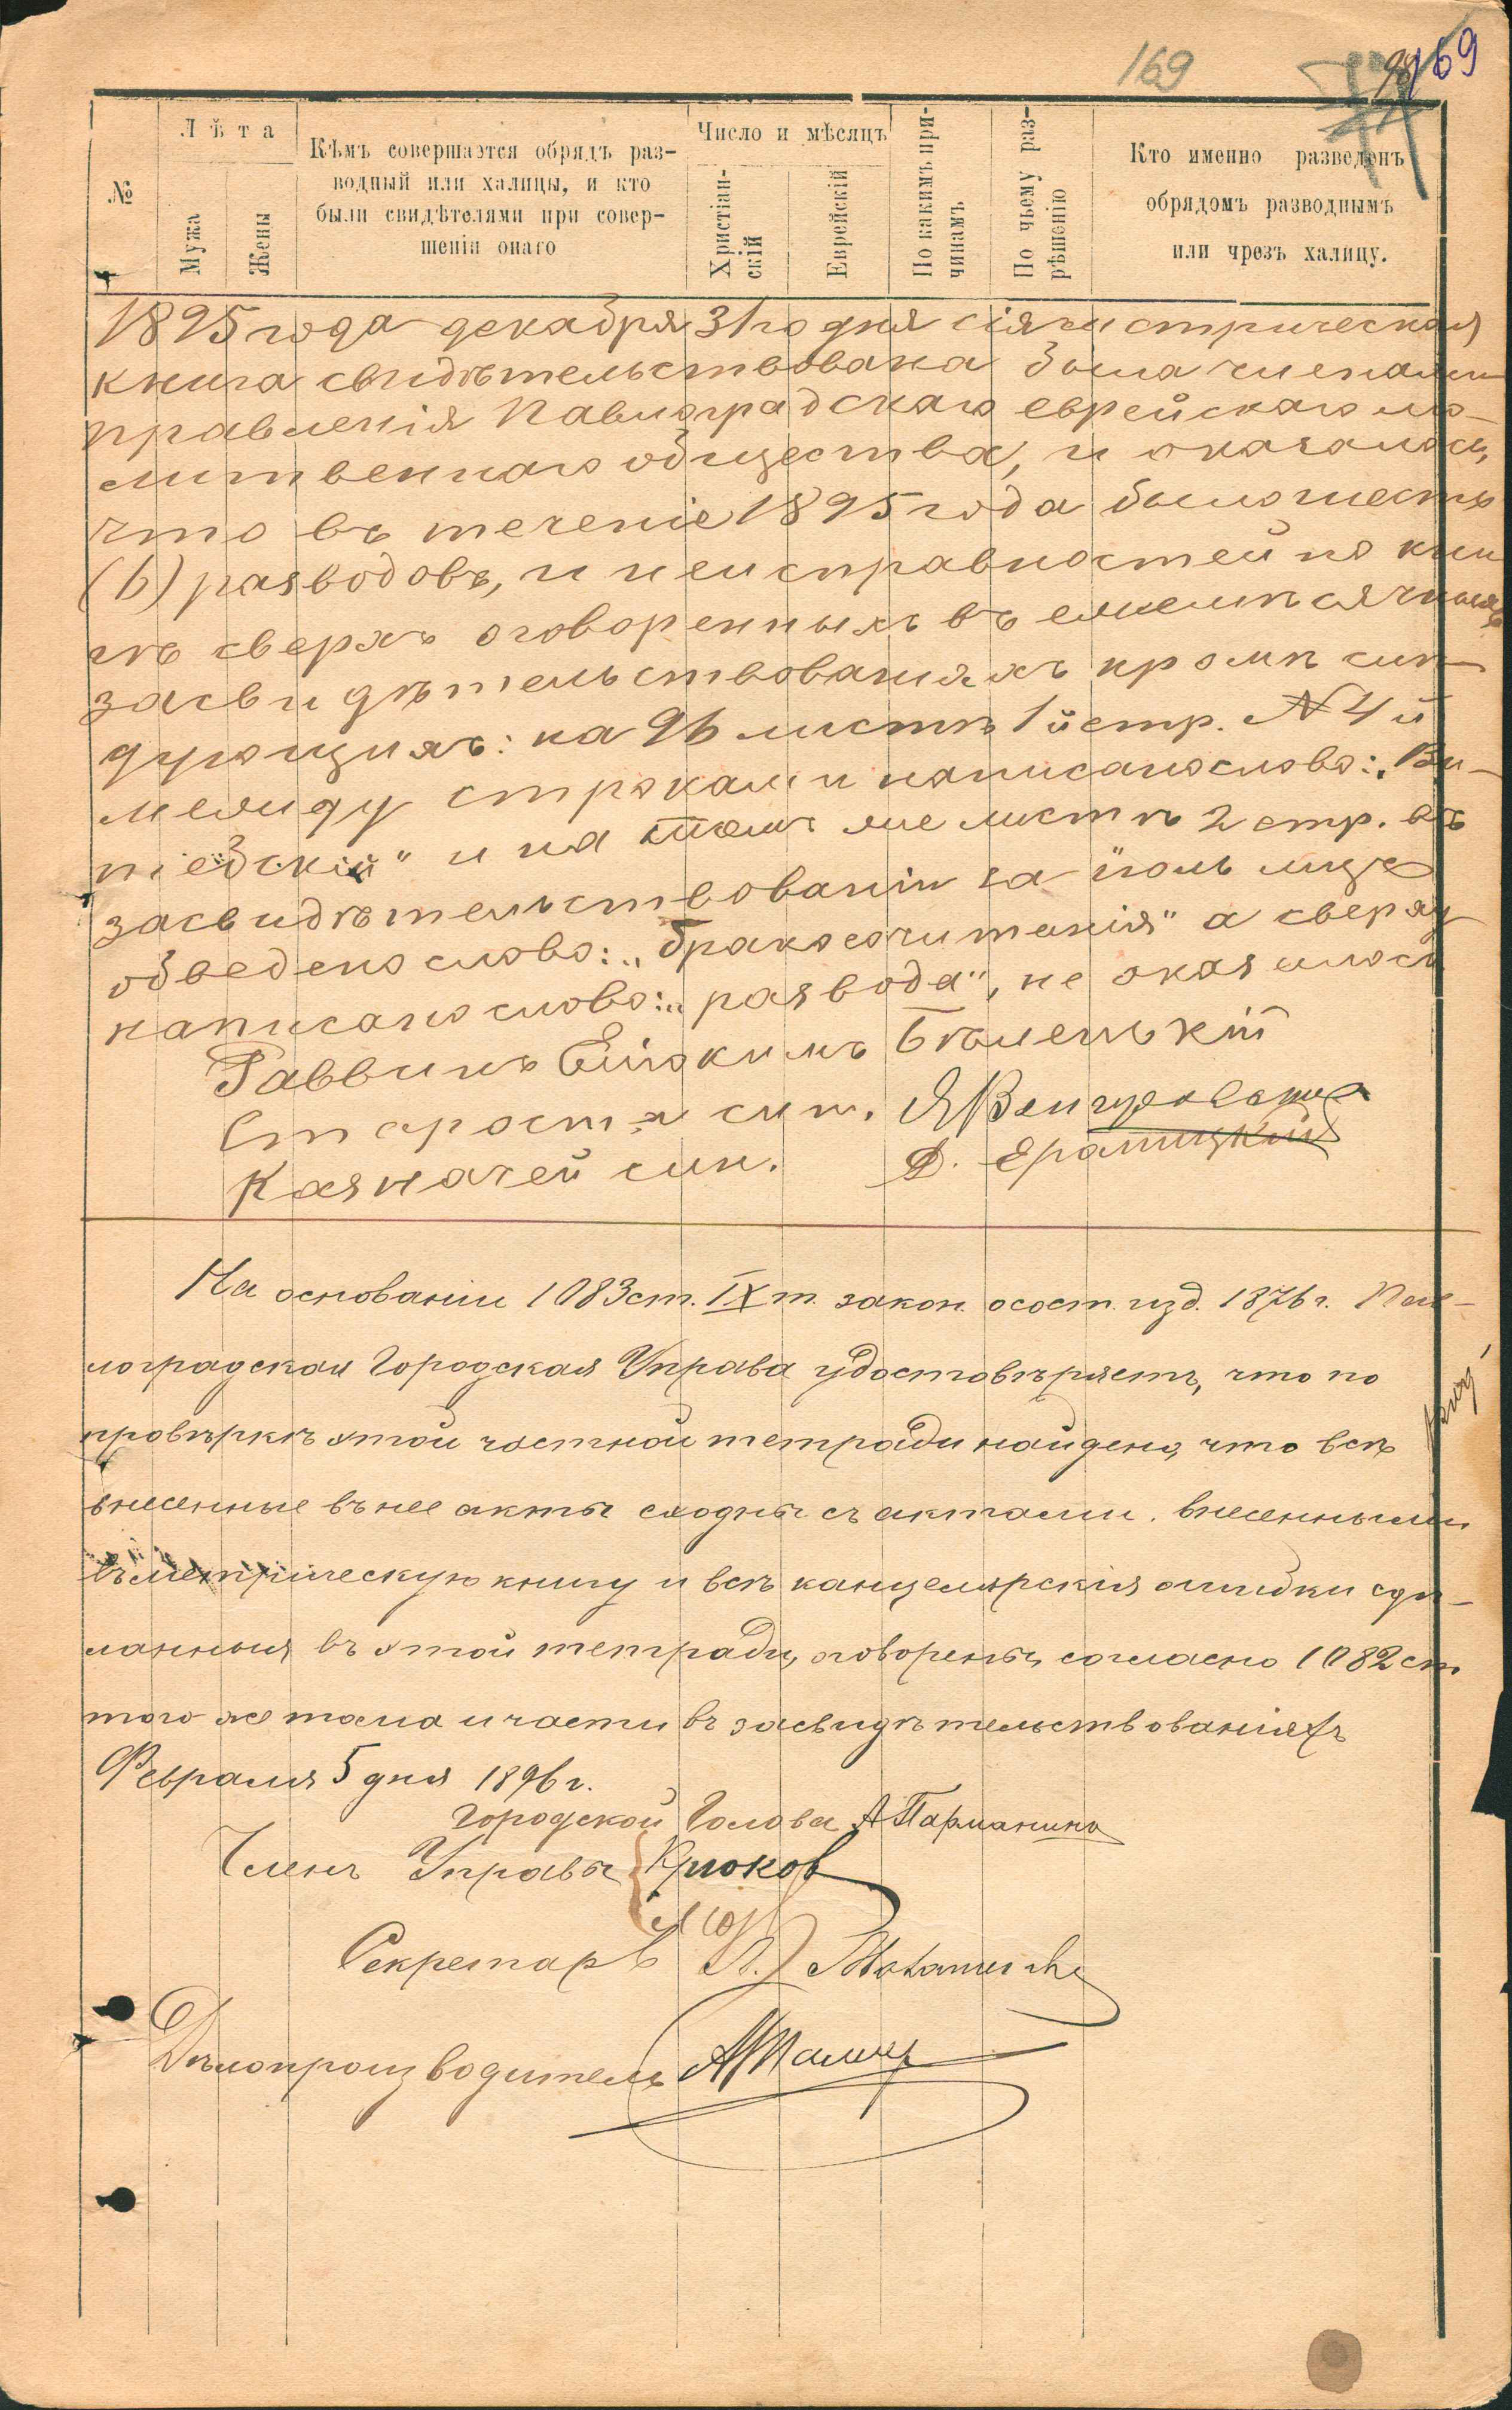 169
98
169
№
Лѣта
Мужа
Жены
Кѣмъ совершается обрядъ раз-
водный или халицы, и кто
были свидѣтелями при совер-
шеніи онаго
Число и мѣсяцъ
Христіан-
скій
Еврейскій
По какимъ при-
чинамъ
По чьему раз-
рѣшенію
Кто именно разведенъ
обрядомъ разводнымъ
или чрезъ халицу.
1895 года декабря 31го дня сія метрическая
книга свидѣтельствована была членами
правленія Павлоградскаго еврейскаго мо-
литвеннаго общества, и оказалось,
что въ теченіе 1895 года было шесть
(6) разводовъ, и неисправностей по кни
гѣ сверхъ оговоренныхъ въ ежемѣсячныхъ
засвидѣтельствованіяхъ кромѣ слѣ-
дующихъ: на 96 листѣ 1й стр. № 4й
между строками написано слово: „Ви-
тебскій" и на томъ же листѣ 2 стр. въ
засвидѣтельствованіи за іюль мцъ
обведено слово: „бракосочитанія" а сверху
написано слово: „развода", не оказалось
Раввинъ Еліокимъ Бѣленькій
Староста син.
Казначей син. Д.
На основаніи 1083 ст. IX т. закон. о сост. изд. 1876 г. Пав-
лоградская Городская Управа удостовѣряетъ, что по
провѣркѣ этой частной тетради найдено, что всѣ
внесенные въ нее акты сходны съ актами, внесенными
въ метрическую книгу и всѣ канцелярскія ошибки сдѣ-
ланныя въ этой тетради, оговорены, согласно 1082 ст
того же тома и части въ засвидѣтельствованіяхъ
Февраля 5 дня 1896 г.
Городской Голова А Парманинъ
Членъ Управы Крюков
Секретарь
Дѣлопроизводитель